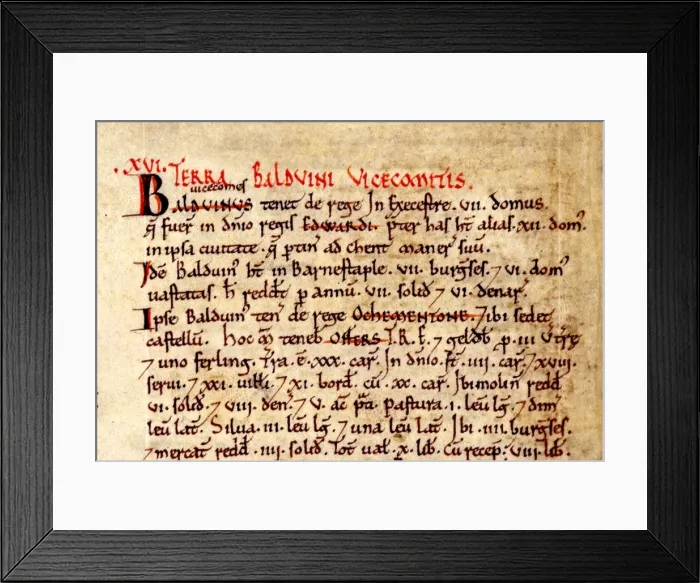 XVI. TERRA BALDVINI VICECOMITIS.
vicecomes
BALDVINUS tenet de rege In Execestre .vii. domus.
q̄ fuer̄ in dn̄io regis EDWARDI. p̄ter has ht̄ alias .xii. dom᷒.
in ipsa ciuitate. q̄ ptin̄ ad Chent maner̄ suū.
Idē Balduin᷒ ht̄ in Barnestaple .vii. burgs̄es. ⁊ vi. dom᷒
uastatas. h̄ reddt̄ p annū .vii. solid̄ ⁊ vi. denar̄.
Ipse Balduin᷒ ten̄ de rege OCHEMENTONE. ⁊ ibi sedet
castellū. Hoc m̄ teneb̄ OSFERS T.R.E. ⁊ geldb̄ p .iii. v̄tge
⁊ uno ferling. Tr̄a .ē. xxx. car̄. In dn̄io. st̄ .iiii. car̄. ⁊ xviii.
serui. ⁊ xxi. uilli. ⁊ xi. bord̄. cū .xx. car̄. Ibi molin̄ redd̄
vi. solid̄. ⁊ viii. den̄. ⁊ v. ac̄ p̄ti. Pastura .i. leūu lḡ. ⁊ dim̄
leūu lat̄. Silua .iii. leūu lḡ. ⁊ una leūu lat̄. Ibi .iiii. burgs̄es.
⁊ mercat̄ redd̄ .iiii. solid̄. Tot̄ ual̄ .x. lib̄. Cū recep̄. viii. lib̄.